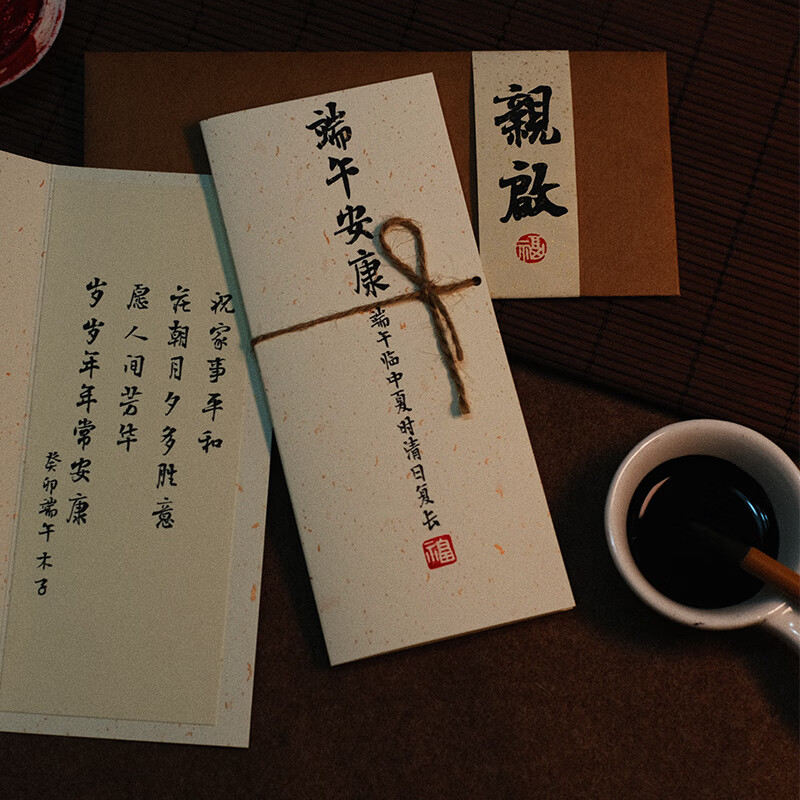 親啟
福
端午安康
端午临中夏时清日复长
福
祝家事平和
花朝月夕多胜意
愿人间芳华
岁岁年年常安康
癸卯端午木子